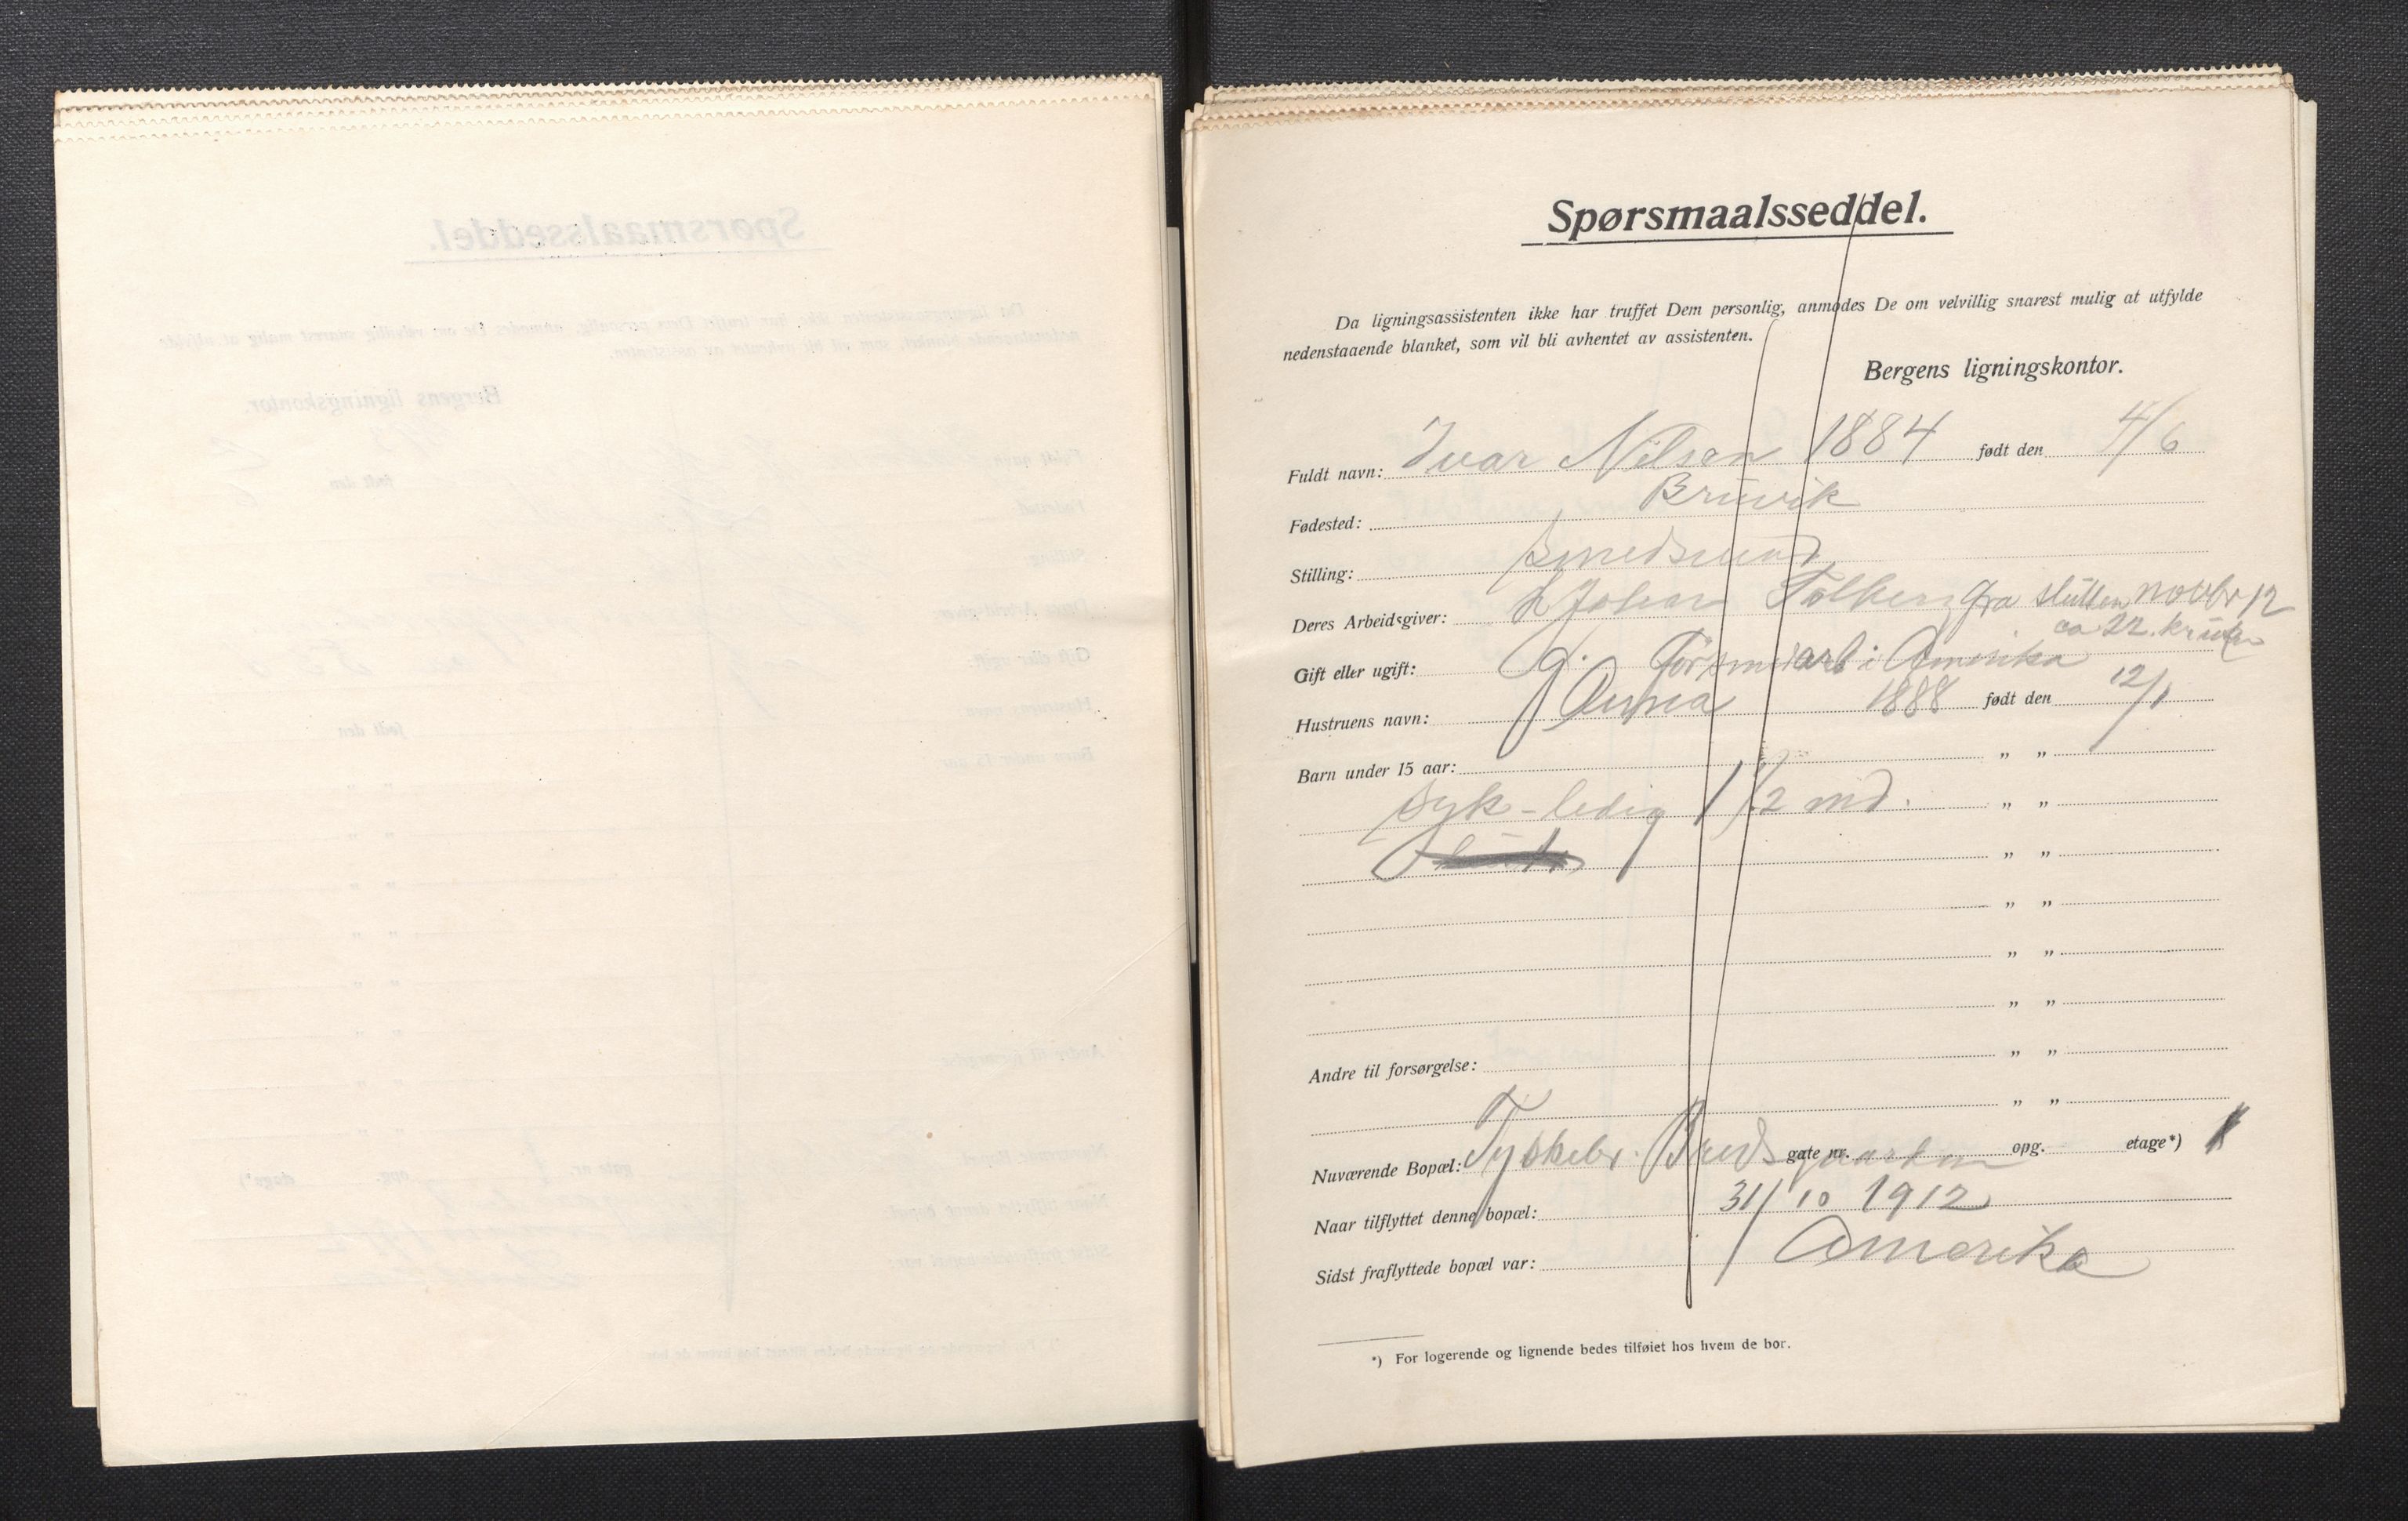 Spørsmaalsseddel.
Da ligningsassistenten ikke har truffet Dem personlig, anmodes De om velvillig snarest mulig at utfylde
nedenstaaende blanket, som vil bli avhentet av assistenten.
Bergens ligningskontor.
Fuldt navn: Ivar Nilsen 1884 født den 4/6
Fødested: Bruvik
Stilling: Smedsvend
Deres Arbeidsgiver: Johan fra slutten novbr 12
ca 22. kr uken
Gift eller ugift: g. Før smedarb i Amerika
Hustruens navn: Anna 1888 født den 12/1
Barn under 15 aar: " "
syk - ledig 1 1/2 md. " "
" "
" "
" "
" "
Andre til forsørgelse: " "
" "
Nuværende Bopæl: Tyskebr. Bredsgaarden gate nr. opg. etage*)
Naar tilflyttet denne bopæl: 31/10 1912
Sidst fraflyttede bopæl var: Amerika
*) For logerende og lignende bedes tilføiet hos hvem de bor.